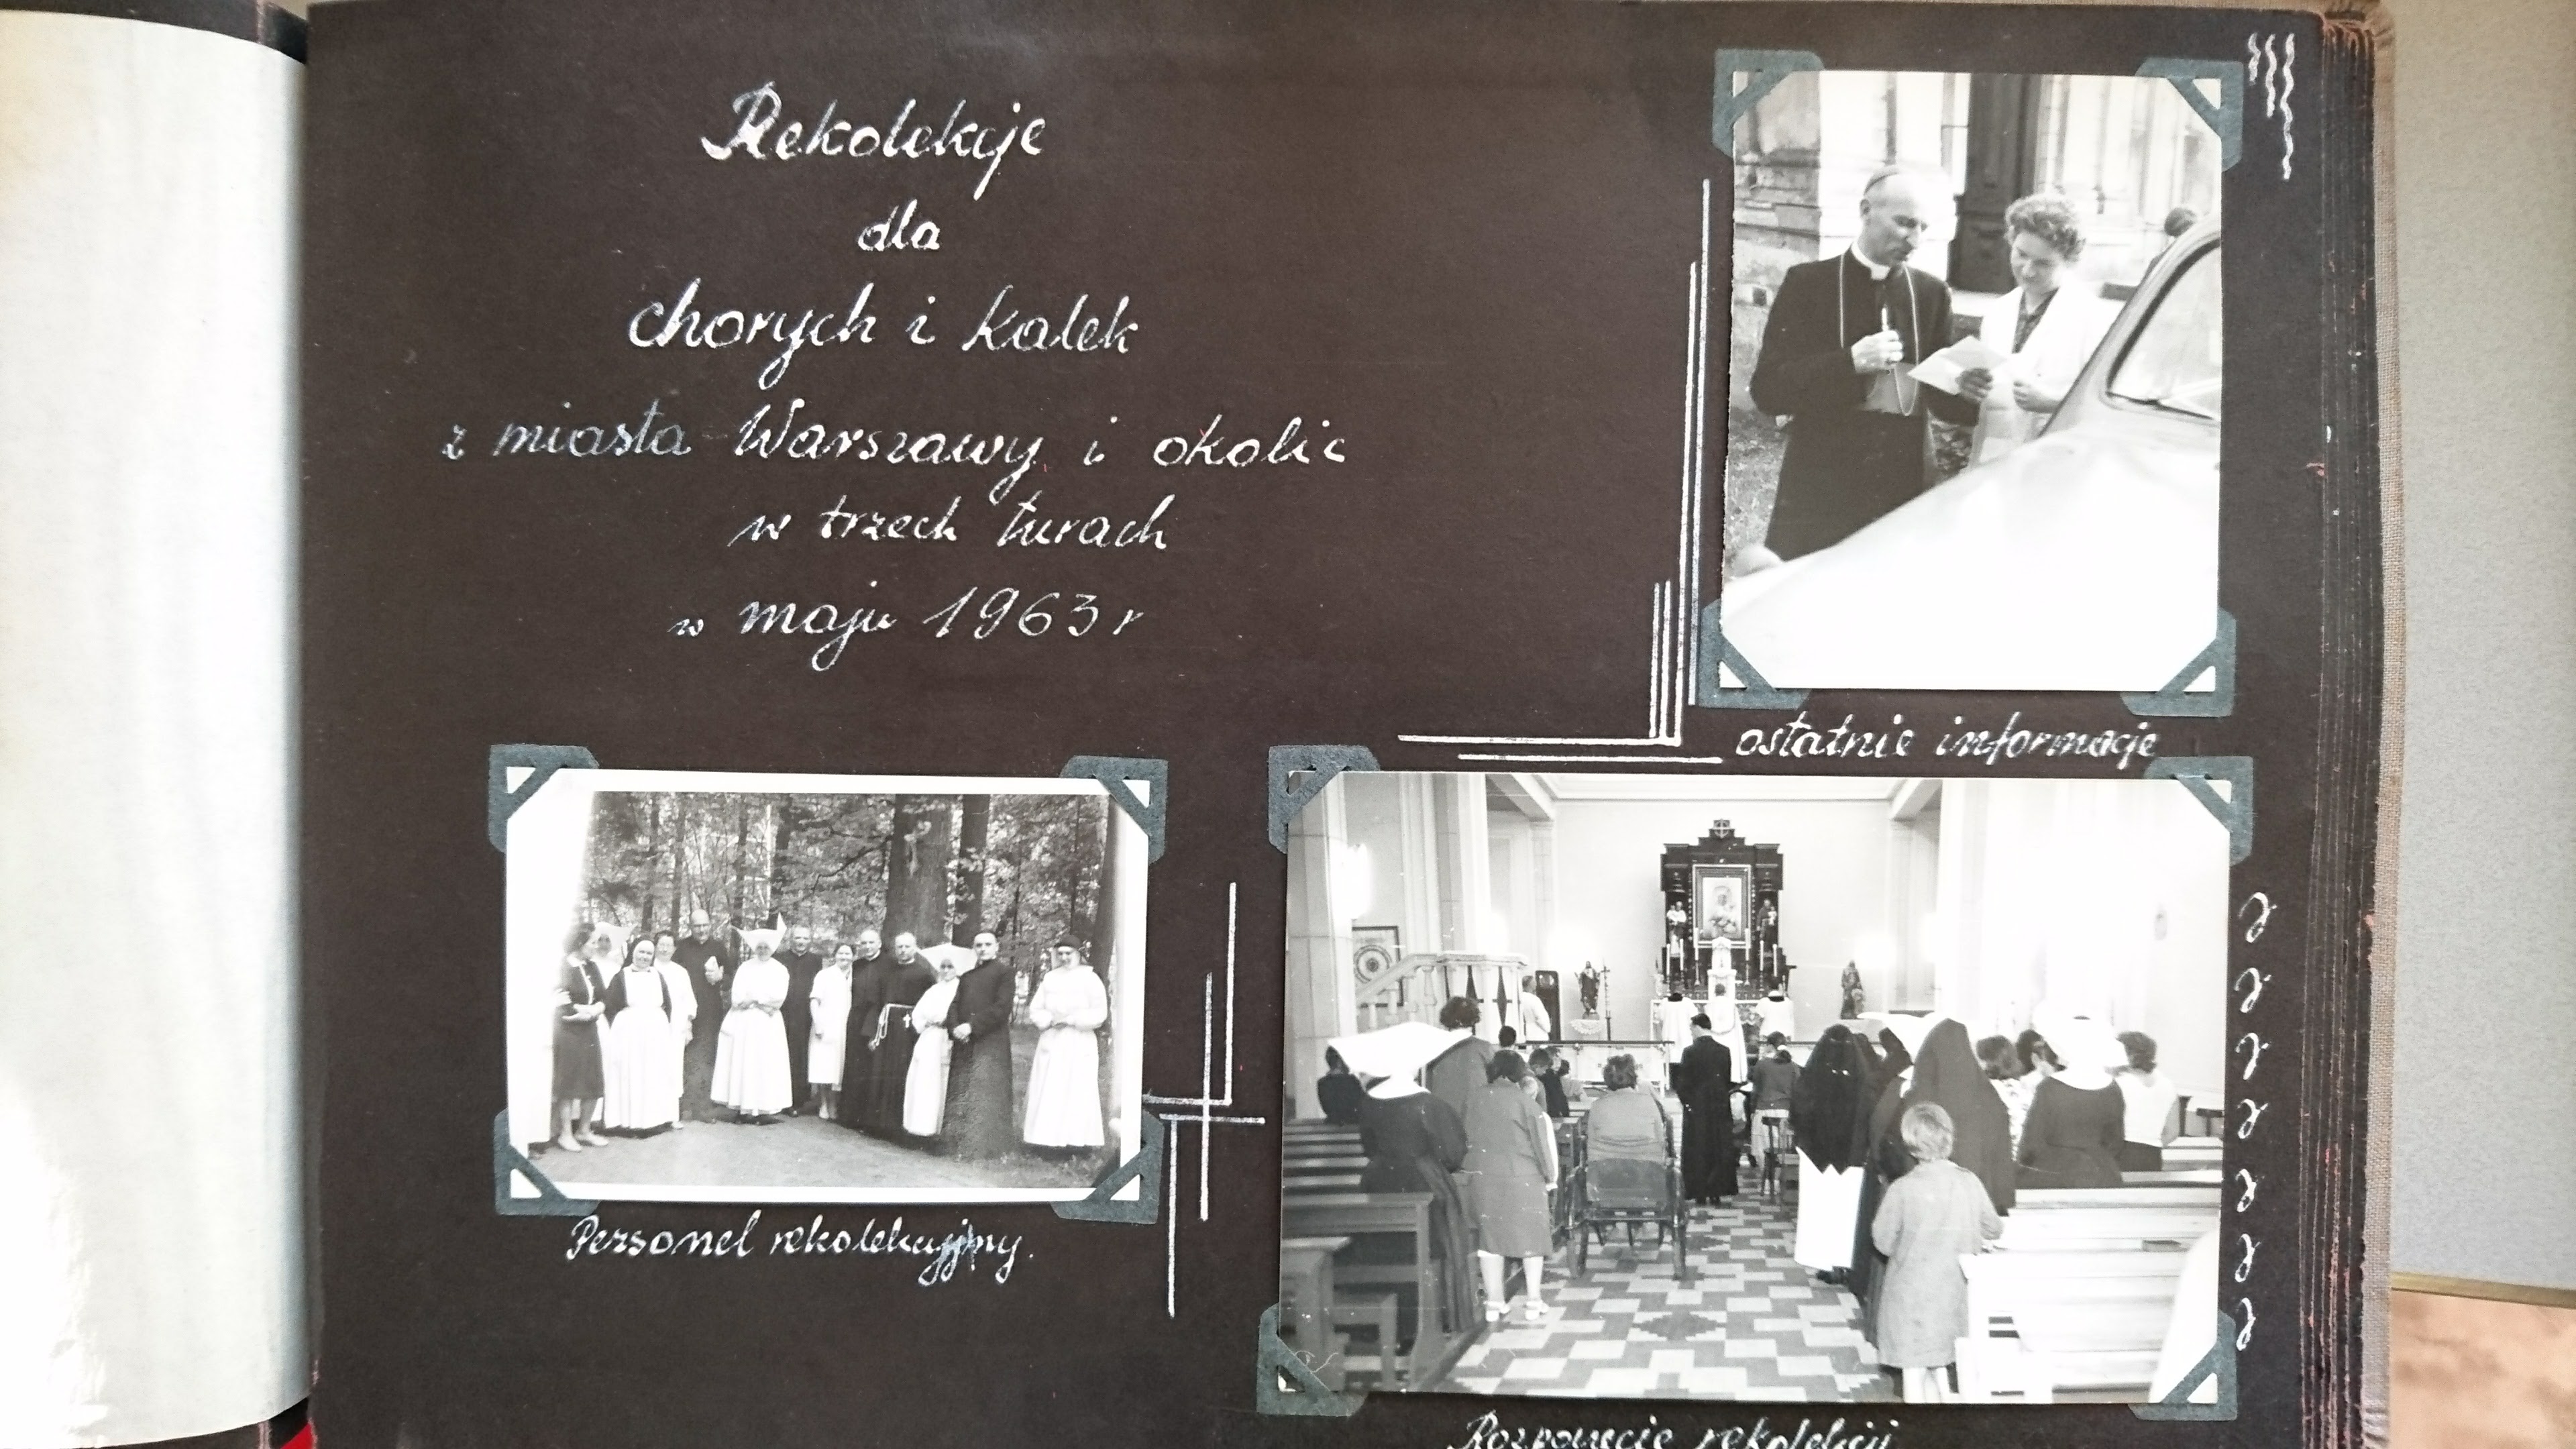 Rekolekcje
dla
chorych i kalek
z miasta Warszawy i okolic
w trzech turach
w maju 1963 r
ostatnie informacje
Personel rekolekcyjny.
Rozpoczęcie rekolekcji